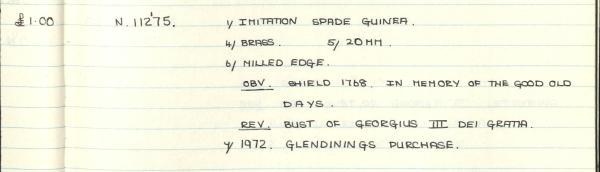 £1.00 N.11275. 1/ IMITATION SPADE GUINEA.
4/ BRASS. 5/ 20MM.
6/ MILLED EDGE.
OBV. SHIELD 1768. IN MEMORY OF THE GOOD OLD
DAYS.
REV. BUST OF GEORGIUS III DEI GRATIA.
7/ 1972. GLENDININGS PURCHASE.